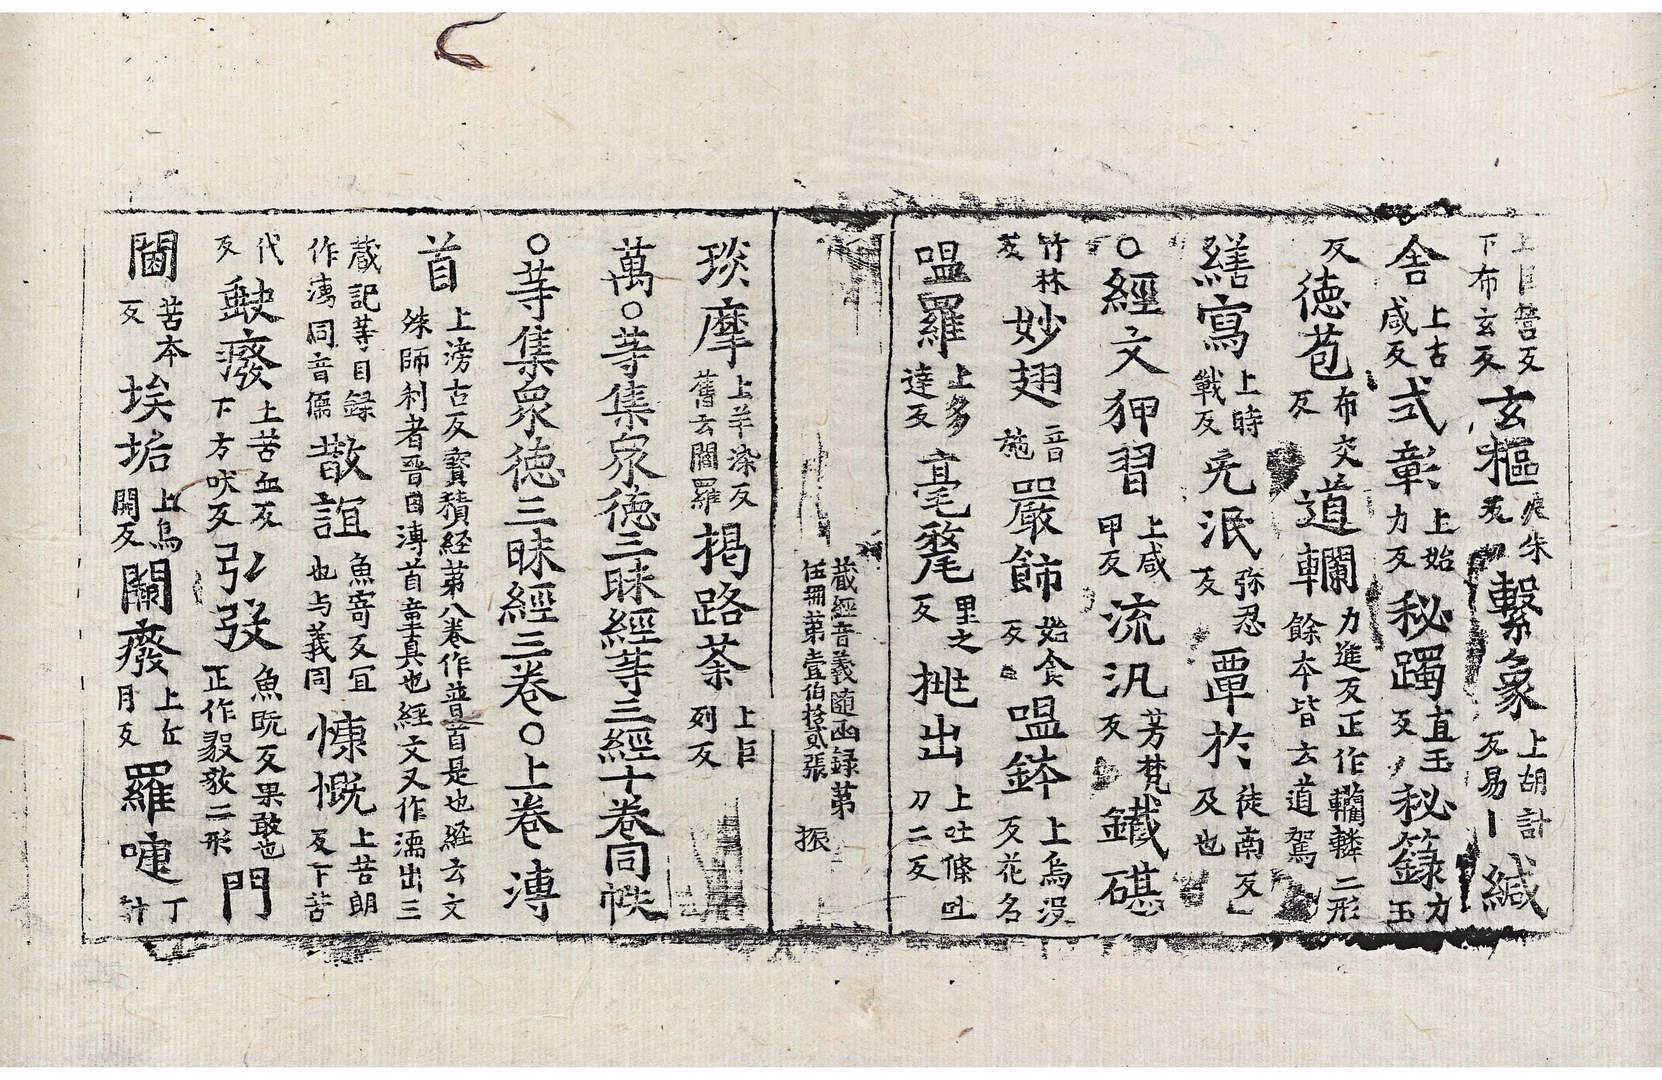 營反下布玄反玄樞朱反繫象上胡計反易｜緘
舍上古咸反式彰上始力反秘躅直玉反秘籙力玉
反德苞布交反道轥力進反正作轥轔二形餘本皆云道駕
繕寫上時戰反旡泯弥忍反覃於徒南反及也
○經文狎習上咸甲反流汎芳梵反鐵碪
竹林反妙翅音施嚴飾始食反嗢鉢上烏没反花名
嗢羅上多達反毫氂里之反挑出上吐條吐刀二反
藏經音義隨函録第
伍冊第壹伯拾貳張 振
琰摩上羊染反舊云閻羅揭路荼上巨列反
萬○䓁集衆德三昧經䓁三經十卷同帙
○䓁集衆德三昧經三卷○上卷 溥
首上滂古反寳積經第八卷作普首是也経云文殊師利者晋曰溥首童真也經文又作濡出三
藏記䓁目録作溥同音儒散誼魚寄反冝也与義同慷慨上苦朗反下苦
代反缺癈上苦血反下方吠反弘毅魚旣反果敢也正作毅㹭二形門
閫苦本反埃垢上烏開反闕癈上丘月反羅嚏丁計